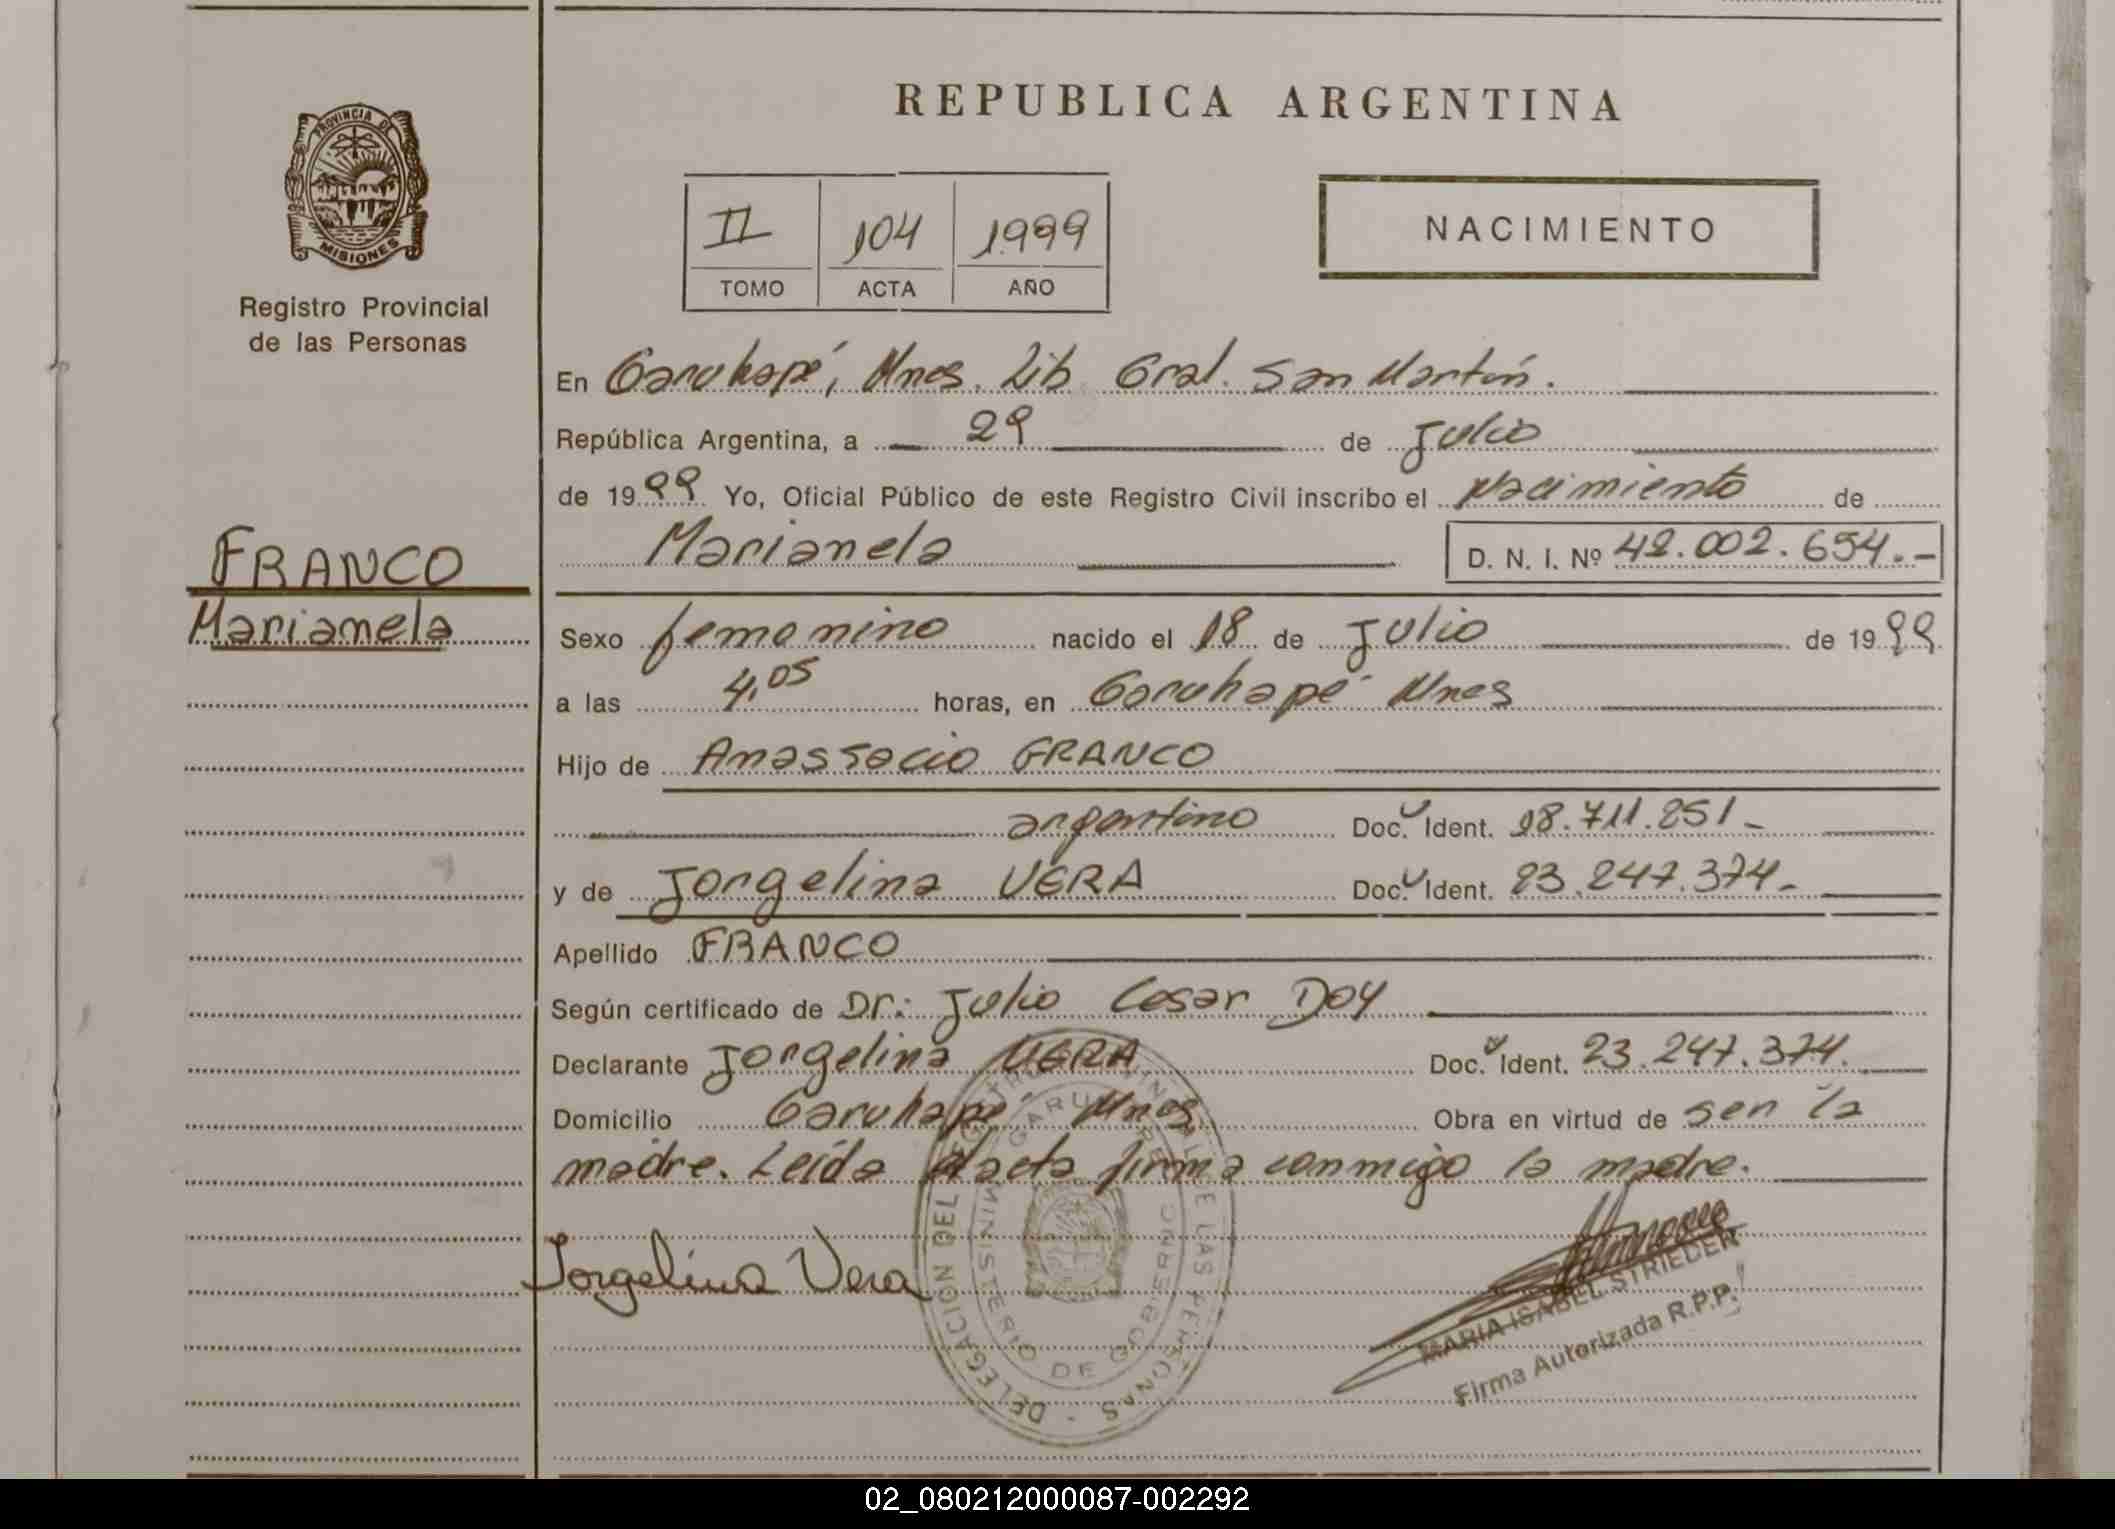 REPUBLICA ARGENTINA
PROVINCIA DE MISIONES
Registro Provincial
de las Personas
II 104 1999
TOMO ACTA AÑO
NACIMIENTO
En Garuhapé, Mnes. Lib. Gral. San Martín.
República Argentina, a 29 de Julio
de 1999 Yo, Oficial Público de este Registro Civil inscribo el Nacimiento de
Marianela D. N. I. Nº 42.002.654.-
FRANCO
Marianela
Sexo femenino nacido el 18 de Julio de 1999
a las 4,05 horas, en Garuhapé Mnes
Hijo de Anastacio FRANCO
argentino Doc. Ident. 18.711.251-
y de Jorgelina VERA Doc. Ident. 23.247.374-
Apellido FRANCO
Según certificado de Dr: Julio Cesar Doy
Declarante Jorgelina VERA Doc. Ident. 23.247.374.
Domicilio Garuhapé Mnes Obra en virtud de ser la
madre. Leída el acta firma conmigo la madre.
Jorgelina Vera
MARIA ISABEL STRIEDER
Firma Autorizada R.P.P.
MINISTERIO DE GOBIERNO
02_080212000087-002292